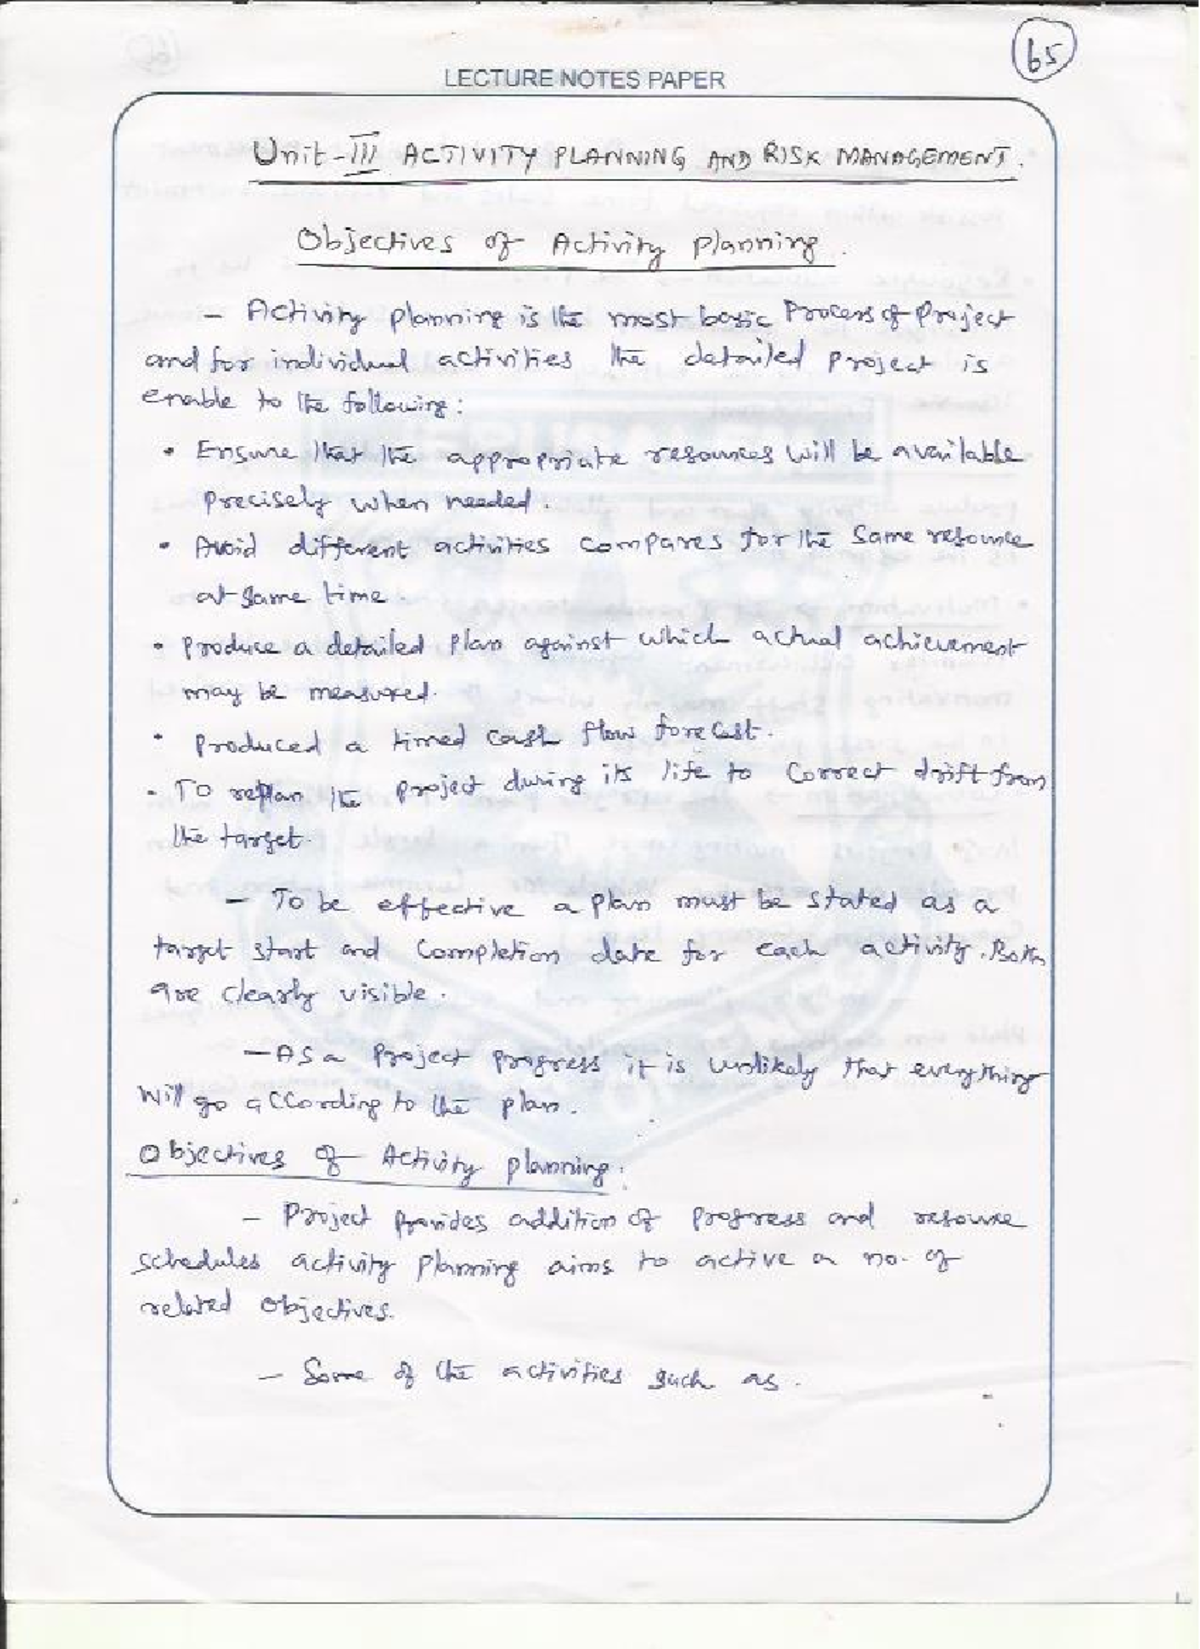 65
LECTURE NOTES PAPER
Unit-III ACTIVITY PLANNING AND RISK MANAGEMENT.
Objectives of Activity planning.
- Activity planning is the most basic Process of Project
and for individual activities the detailed project is
enable to the following:
• Ensure that the appropriate resources will be available
Precisely when needed.
• Avoid different activities compares for the Same resource
at same time.
• produce a detailed plan against which actual achievement
may be measured.
• produced a timed cash flow forecast.
• TO replan the project during its life to correct drift from
the target.
- To be effective a plan must be stated as a
target start and completion date for each activity. Both
are clearly visible.
- As a Project progress it is unlikely that everything
Will go according to the plan.
Objectives of Activity planning:
- Project provides addition of progress and resource
schedules activity planning aims to active a no. of
related objectives.
- Some of the activities such as.